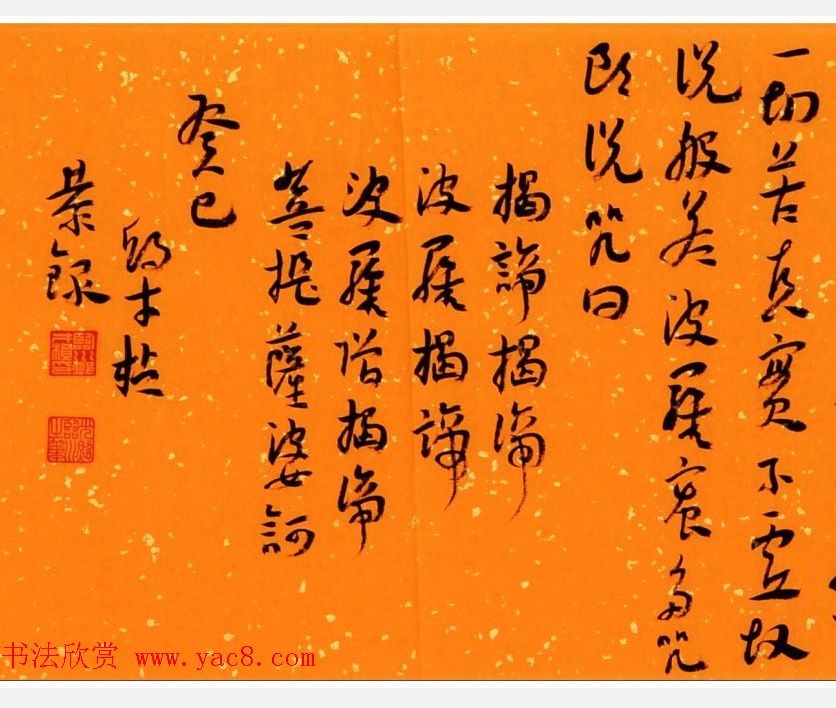 一切苦真實不虛故
說般若波羅蜜多咒
即說咒曰
揭諦揭諦
波羅揭諦
波羅僧揭諦
菩提薩婆訶
癸巳
邱才楨
恭録
书法欣赏 www.yac8.com